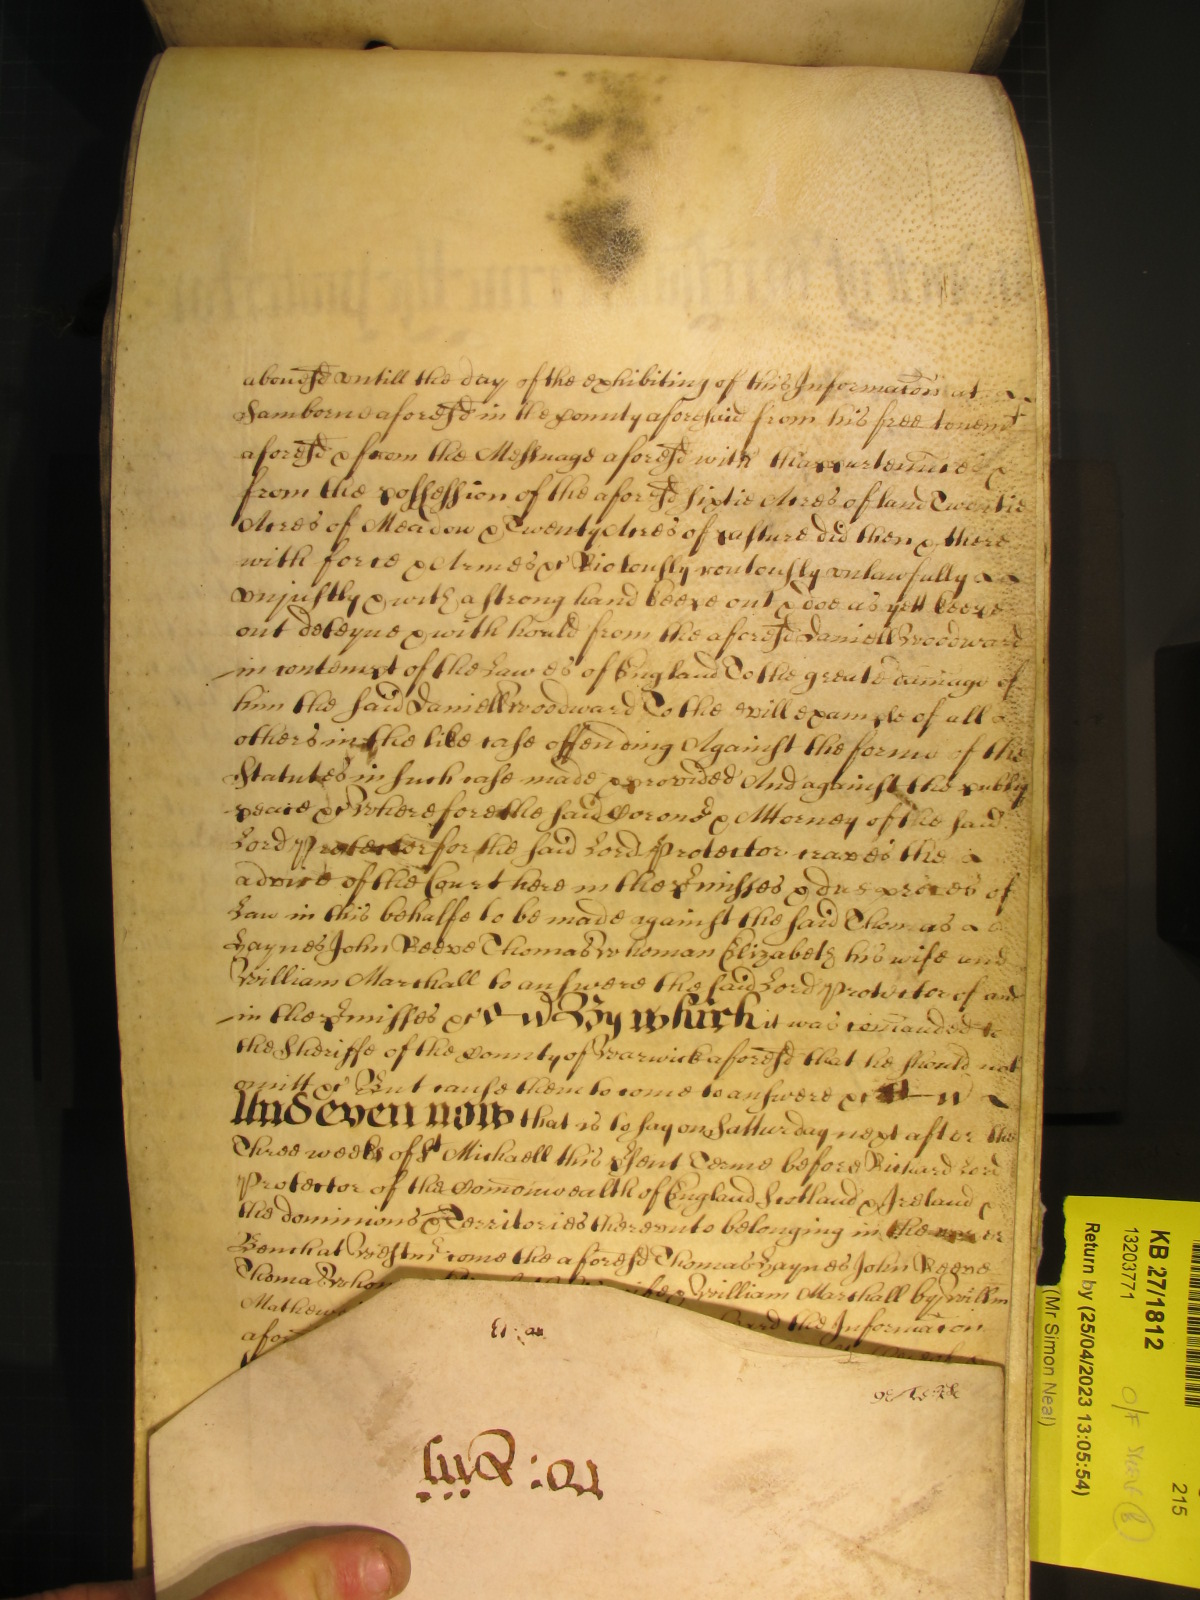 abouesd vntill the day of the exhibiting of this Informacon at
Samborne aforesd in the County aforesaid from his free tenemt
aforesd & from the Messuage aforesd with thappurtenncs &
from the possession of the aforesd sixtie Acres of land Twentie
Acres of Meadow & Twenty Acres of pasture did then & there
with force & Armes &c Riotously routously vnlawfully
vnjustly & with a strong hand keepe out & doe as yett keepe
out deteyne & with hould from the aforesd Daniell Woodward
in contempt of the Lawes of England To the greate damage of
him the said Daniell Woodward To the evill example of all
others in the like case offending Against the forme of the
Statutes in such case made & provided And against the publiq
peace &c Wherefore the said Coroner & Attorney of the said
Lord Protector for the said Lord Protector craves the
advice of the Court here in the Pmisses & due proces of
Law in this behalfe to be made against the said Thomas
Haynes John Reeve Thomas Whoman Elizabeth his wife and
William Marshall to answere the said Lord Protector of and
in the Pmisses &c By which it was comanded to
the Sheriffe of the County of Warwick aforesd that he should not
omitt &c But cause them to come to answere &c
And even now that is to say on Satturday next after the
Three weekes of St Michaell this Psent Terme before Richard Lord
Protector of the Comonwealth of England Scotland & Ireland &
the dominions & Territories therevnto belonging in the upper
Bench at Westmr come the aforesd Thomas Haynes John Reeve
Thomas Whom wife & William Marshall by Willm
Mathew heard the Informacon
afor
ro: Liiij
KB 27/1812
13203771
Return by (25/04/2023 13:05:54)
(Mr Simon Neal)
215